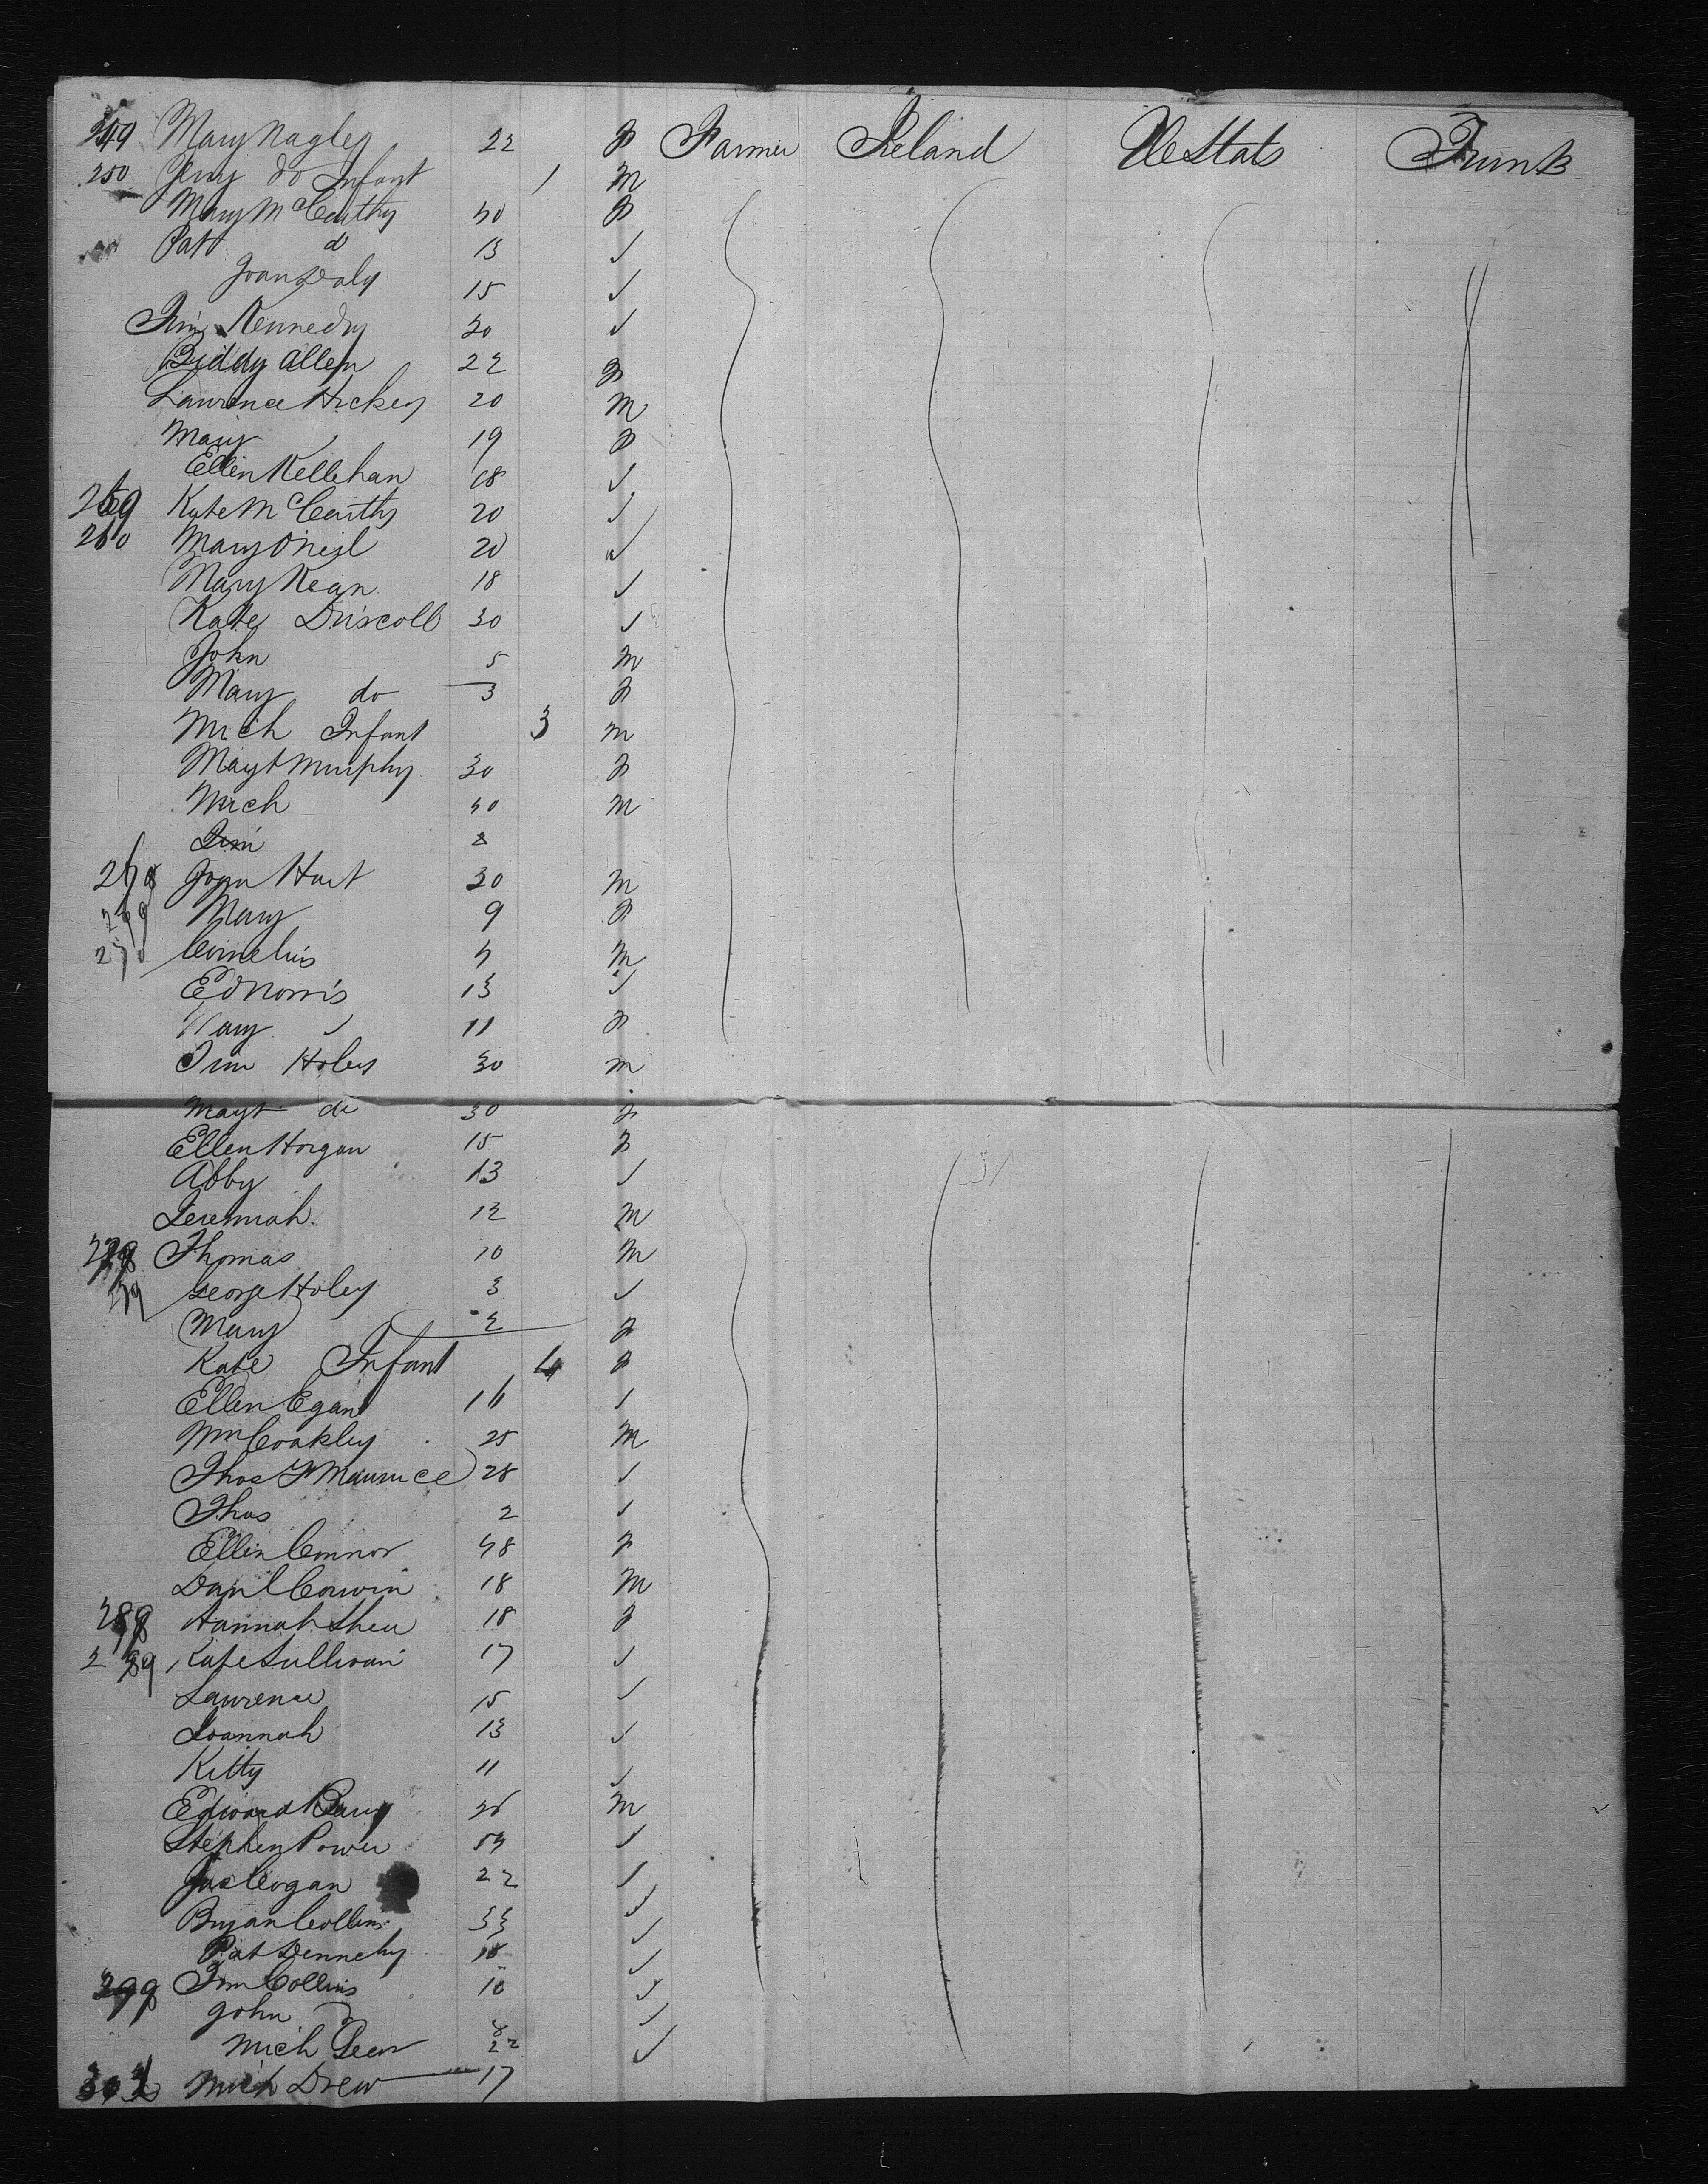 249 Mary Nagley 22 F Farmer Ireland Ue Stats Trunk
250 Jerry do Infant 1 M
Mary McCarthy 40 F
Pat d 13 √
Joan Daly 15 √
Jim Kennedy 20 √
Biddy Allen 22 F
Laurence Hickey 20 M
Mary √ 19 F
Ellen Kellehan 18 √
259 Kate McCarthy 20 √
260 Mary O'Neil 20 √
Mary Kean 18 √
Kate Driscoll 30 √
John 5 M
Mary do 3 F
Mich Infant 3 M
Magt Murphy 30 F
Mich 40 M
Jim 8
268 John Hart 30 M
269 Mary 9 F
270 Cornelius 4 M
Ed Norris 13 √
Mary √ 11 F
Tim Holey 30 M
Magt do 30 F
Ellen Horgan 15 F
Abby 13 √
Jeremiah 12 M
278 Thomas 10 M
279 George Holey 3 √
Mary 2 F
Kate Infant 4 F
Ellen Egan 16 √
Wm Coakley 25 M
Thos F Maurice 28 √
Thos 2 √
Ellen Connor 48 F
Danl Corwin 18 M
288 Hannah Shea 18 F
289 Kate Sullivan 17 √
Laurence 15 √
Joannah 13 √
Kitty 11 √
Edward Barry 26 M
Stephen Power 54 √
Jas Cogan 22 √
Bryan Collins 33 √
Pat Dennehy 18 √
299 Tim Collins 10 √
John 8 √
Mich Gear 22 √
302 Mich Drew 17